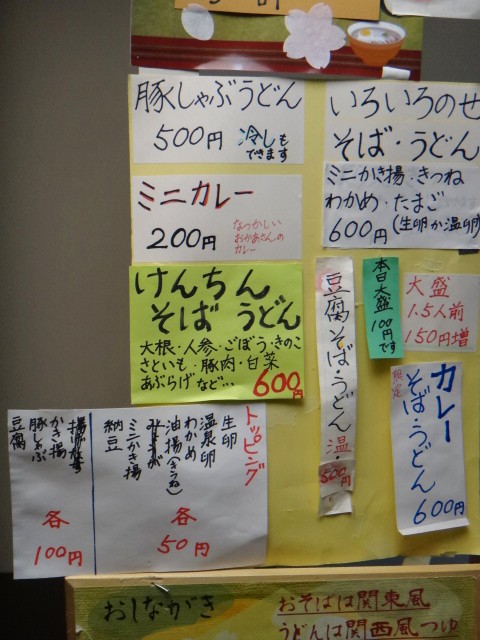 豚しゃぶうどん
500円 冷しも
できます
いろいろのせ
そば・うどん
ミニかき揚・きつね
わかめ・たまご
600円(生卵か温卵)
ミニカレー
200円
なつかしい
おかあさんの
カレー
けんちん
そば うどん
大根・人参・ごぼう・きのこ
さといも・豚肉・白菜
あぶらげなど…
600円
豆腐そば・うどん 温
500円
本日大盛
100円です
大盛
1.5人前
150円増
カレー
そば・うどん
限定
600円
トッピング
生卵
温泉卵
わかめ
油揚(きつね)
ミニかき揚
納豆
各
50円
かき揚
豚しゃぶ
豆腐
各
100円
おしながき
おそばは関東風
うどんは関西風つゆ